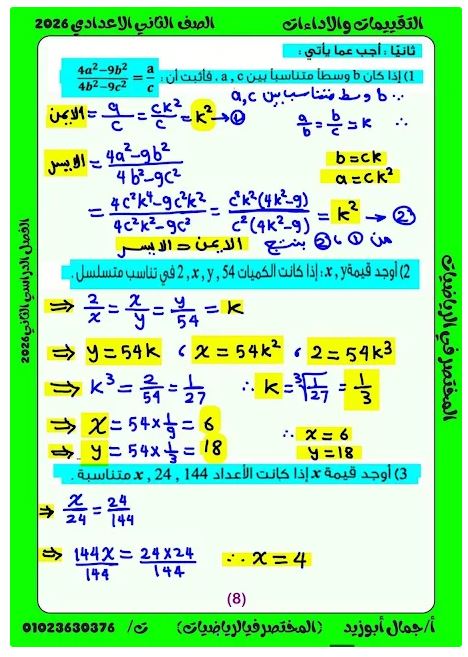 التقييمات والاداءات
الصف الثاني الاعدادي 2026
ثانيًا : أجب عما يأتي :
1) إذا كان b وسطاً متناسباً بين a , c ، فأثبت أن : (4a²−9b²)/(4b²−9c²) = a/c
∵ b وسط متناسب بين a,c
∴ a/b = b/c = k
الايمن = a/c = ck²/c = k² → ①
b = ck
a = ck²
الايسر = (4a²−9b²)/(4b²−9c²)
= (4c²k⁴−9c²k²)/(4c²k²−9c²) = c²k²(4k²−9)/c²(4k²−9) = k² → ②
من ① ، ② ينتج الايمن = الايسر
2) أوجد قيمة x , y : إذا كانت الكميات 2 , x , y , 54 في تناسب متسلسل .
⇒ 2/x = x/y = y/54 = k
⇒ y = 54k ، x = 54k² ، 2 = 54k³
⇒ k³ = 2/54 = 1/27 ∴ k = ∛(1/27) = 1/3
⇒ x = 54×1/9 = 6 ∴ x = 6
⇒ y = 54×1/3 = 18 y = 18
3) أوجد قيمة x إذا كانت الأعداد x , 24 , 144 متناسبة .
⇒ x/24 = 24/144
⇒ 144x/144 = 24×24/144 ∴ x = 4
(8)
أ/جمال أبوزيد (المختصر في الرياضيات) ت/ 01023630376
المختصر في الرياضيات
الفصل الدراسي الثاني 2026